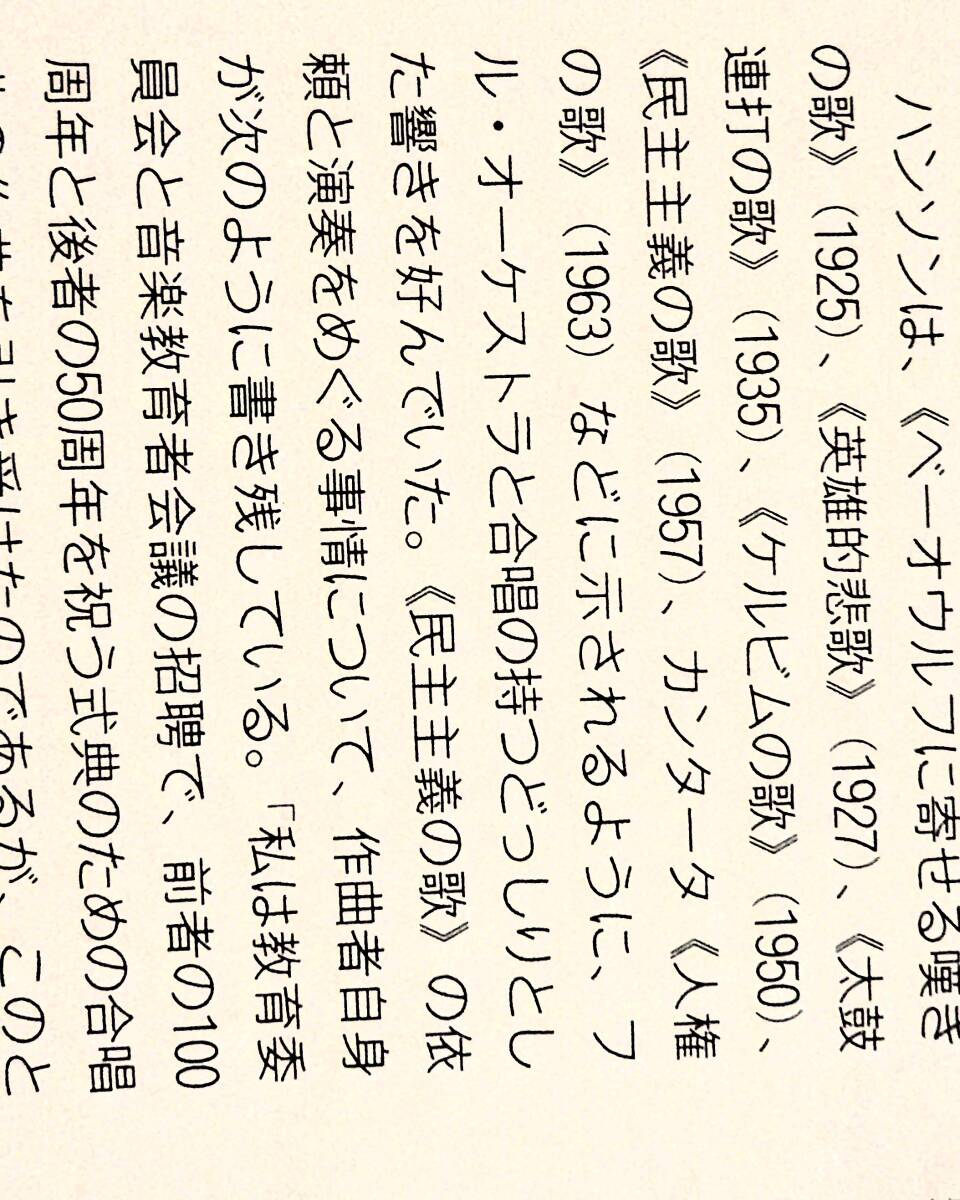 ハンソンは、《ベーオウルフに寄せる嘆き
の歌》（1925）、《英雄的悲歌》（1927）、《太鼓
連打の歌》（1935）、《ケルビムの歌》（1950）、
《民主主義の歌》（1957）、カンタータ《人権
の歌》（1963）などに示されるように、フ
ル・オーケストラと合唱の持つどっしりとし
た響きを好んでいた。《民主主義の歌》の依
頼と演奏をめぐる事情について、作曲者自身
が次のように書き残している。「私は教育委
員会と音楽教育者会議の招聘で、前者の100
周年と後者の50周年を祝う式典のための合唱
を引き受けたのであるが、このと